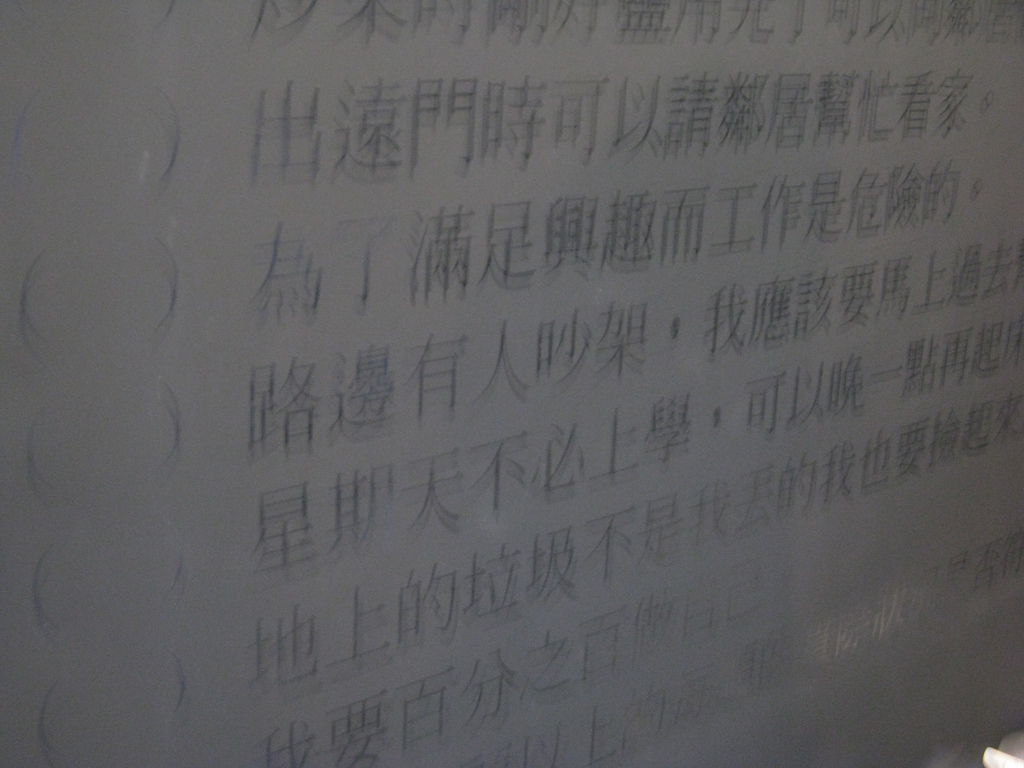 炒菜時剛好鹽用完了可以向鄰居
( ) 出遠門時可以請鄰居幫忙看家。
( ) 為了滿足興趣而工作是危險的。
( ) 路邊有人吵架,我應該要馬上過去
( ) 星期天不必上學,可以晚一點再起床
( ) 地上的垃圾不是我丟的我也要撿起來
我要百分之百做自己
以上的